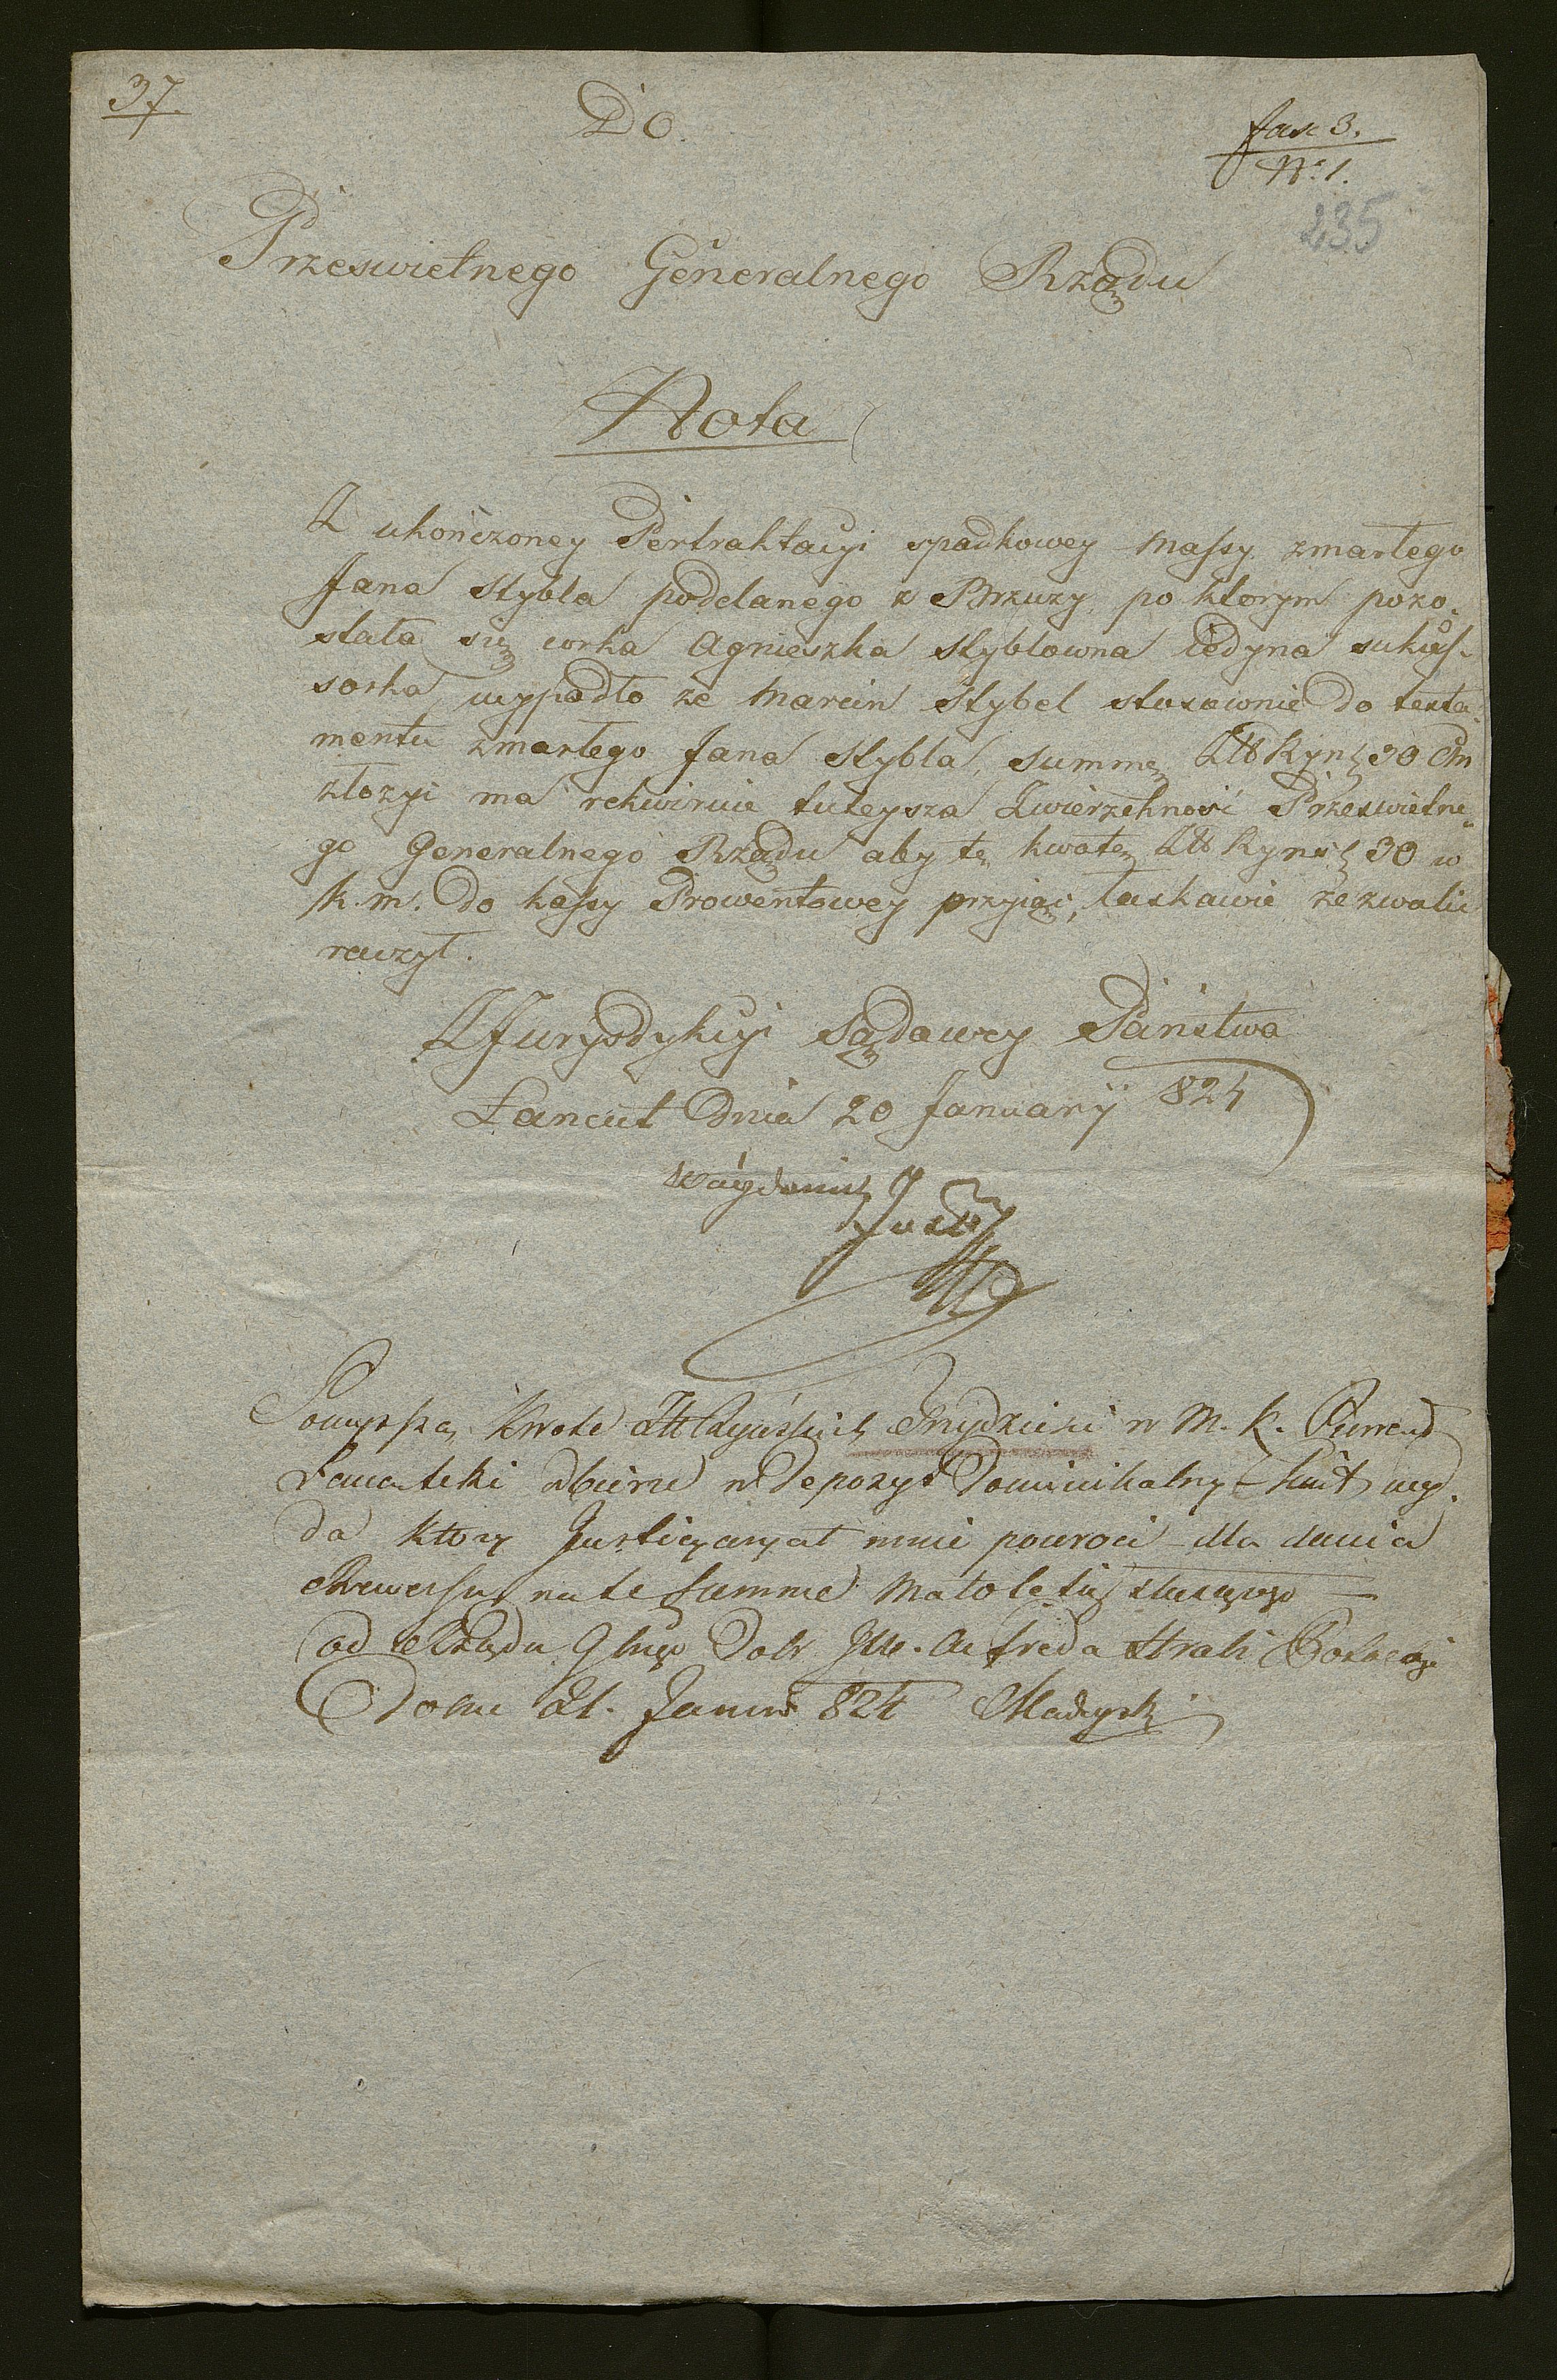 37.
Do
fasc 3.
No 1.
235
Przeswietnego Generalnego Rządu
Nota
Z ukończoney Pertraktacyi spadkowey massy zmarłego
Jana Stybla poddanego z Brzuzy po ktorym pozo-
stała się corka Agnieszka Styblowna iedyna sukces-
sorka, wypadło ze Marcin Stybel stosownie do testa-
mentu zmarłego Jana Stybla, summę Zł Ryn 30 CM
złozyć ma rekwiruie tuteysza Zwierzchność Przeswietne-
go Generalnego Rządu aby tę kwotę Zł Ryńs 30 w
k. m. do kassy Prowentowey przyiąć, łaskawie zezwalić
raczył.
Z Jurysdykcyi Sądowey Państwa
Łancut Dnia 20 January 824
Just
Powyższą Kwote Zł Ryńskich Trzydzieści w M. K.
zbierze w Depozyt Dominikalny - kwit wy-
da ktory Justicyaryat mnie powroci - dla dania
Rewersu na te summe Małoletni słuzącego
od Rządu Głngo Dobr JW. Alfreda Hrabi Potockiego
Dolne 21. Janu 824